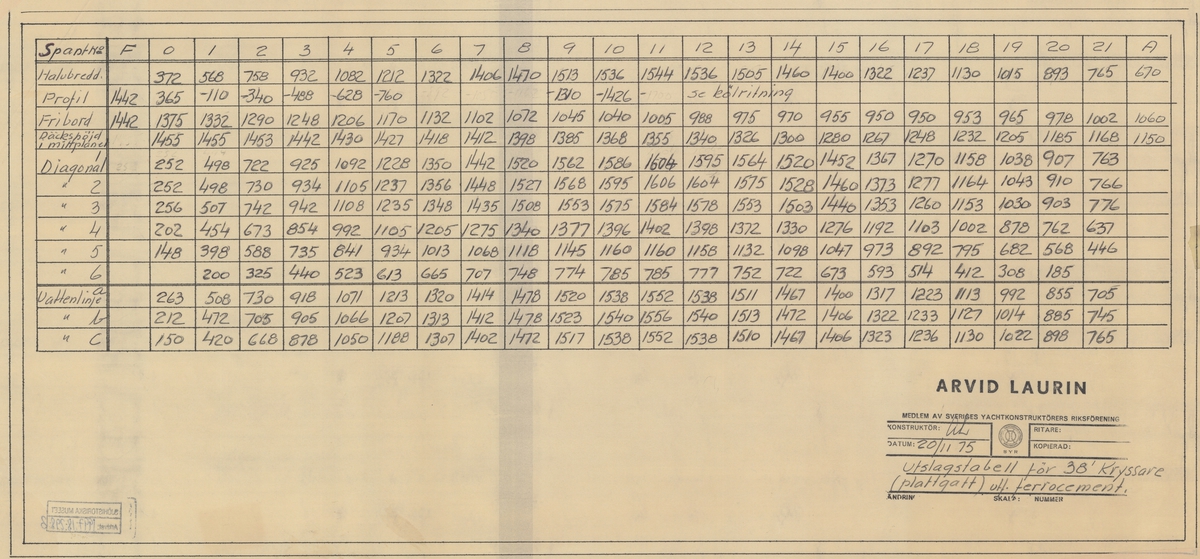 Spant No F 0 1 2 3 4 5 6 7 8 9 10 11 12 13 14 15 16 17 18 19 20 21 A
Halvbredd. 372 568 758 932 1082 1212 1322 1406 1470 1513 1536 1544 1536 1505 1460 1400 1322 1237 1130 1015 893 765 670
Profil 1442 365 -110 -340 -488 -628 -760 -1310 -1426 - se kölritning
Fribord 1442 1375 1332 1290 1248 1206 1170 1132 1102 1072 1045 1040 1005 988 975 970 955 950 950 953 965 978 1002 1060
Däckshöjd
i mittplanet 1455 1455 1453 1442 1430 1427 1418 1412 1398 1385 1368 1355 1340 1326 1300 1280 1267 1248 1232 1205 1185 1168 1150
Diagonal 1 252 498 722 925 1092 1228 1350 1442 1520 1562 1586 1604 1595 1564 1520 1452 1367 1270 1158 1038 907 763
" 2 252 498 730 934 1105 1237 1356 1448 1527 1568 1595 1606 1604 1575 1528 1460 1373 1277 1164 1043 910 766
" 3 256 507 742 942 1108 1235 1348 1435 1508 1553 1575 1584 1578 1553 1503 1440 1353 1260 1153 1030 903 776
" 4 202 454 673 854 992 1105 1205 1275 1340 1377 1396 1402 1398 1372 1330 1276 1192 1103 1002 878 762 637
" 5 148 398 588 735 841 934 1013 1068 1118 1145 1160 1160 1158 1132 1098 1047 973 892 795 682 568 446
" 6 200 325 440 523 613 665 707 748 774 785 785 777 752 722 673 593 514 412 308 185
Vattenlinje a 263 508 730 918 1071 1213 1320 1414 1478 1520 1538 1552 1538 1511 1467 1400 1317 1223 1113 992 855 705
" b 212 472 705 905 1066 1207 1313 1412 1478 1523 1540 1556 1540 1513 1472 1406 1322 1233 1127 1014 885 745
" c 150 420 668 878 1050 1188 1307 1402 1472 1517 1538 1552 1538 1510 1467 1406 1323 1236 1130 1022 898 765
ARVID LAURIN
MEDLEM AV SVERIGES YACHTKONSTRUKTÖRERS RIKSFÖRENING
KONSTRUKTÖR: RITARE:
DATUM: 20/11 75 SYR KOPIERAD:
Utslagstabell för 38' Kryssare
(plattgatt) utf. ferrocement.
ÄNDRING SKALA: NUMMER
SJÖHISTORISKA MUSEET